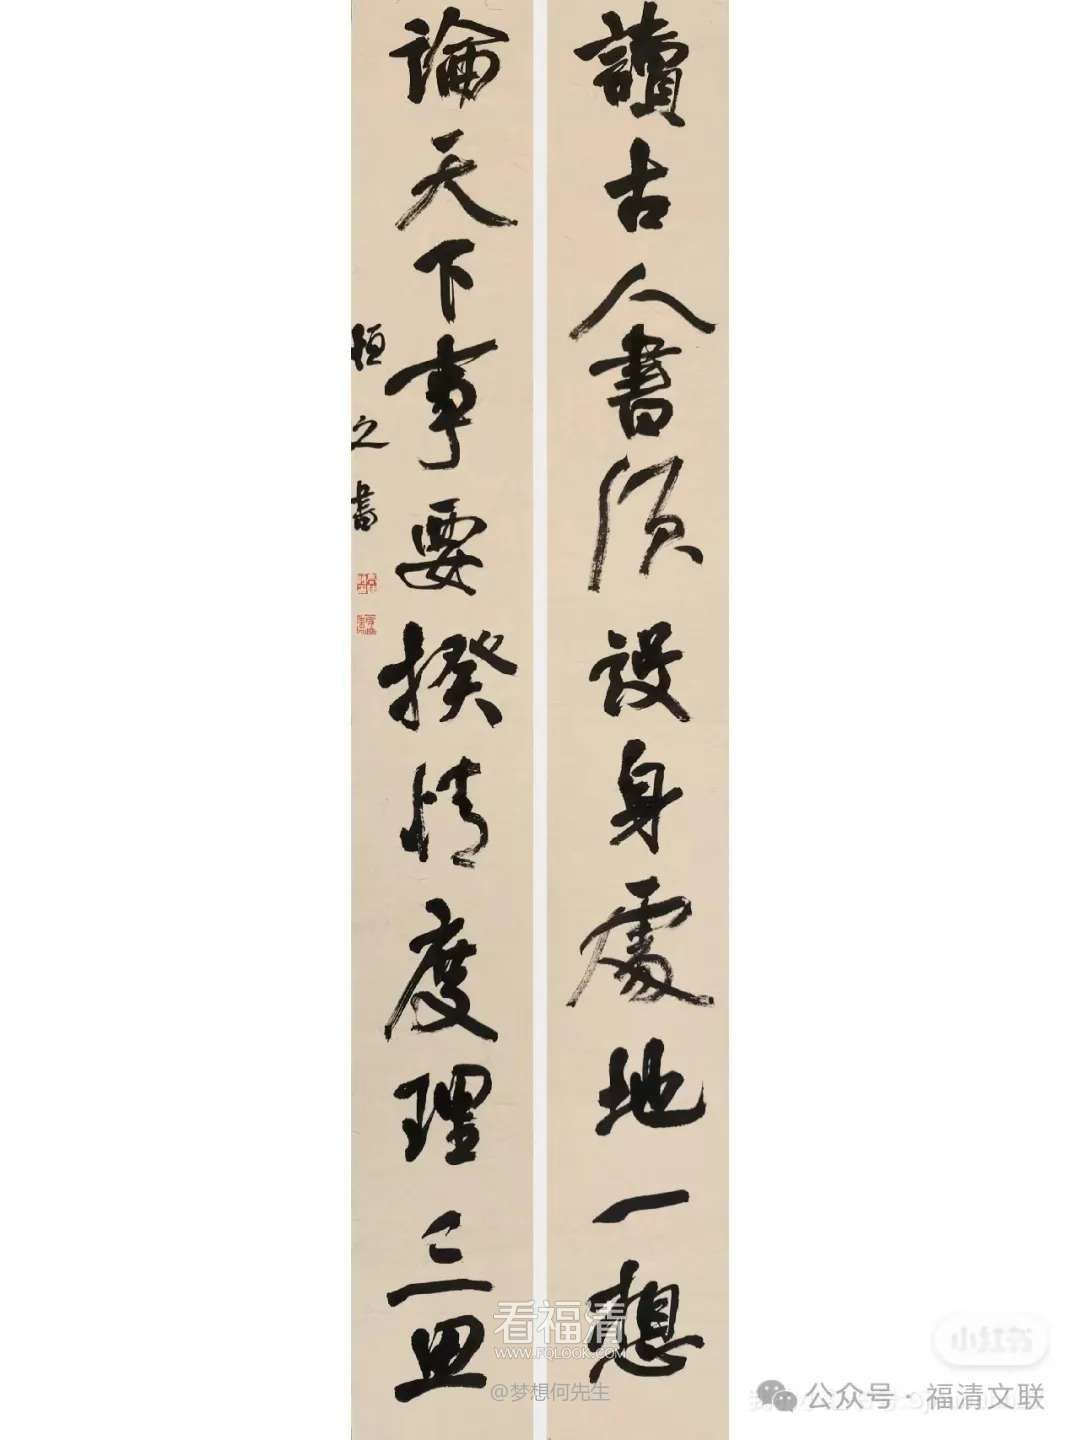 讀古人書須設身處地一想
論天下事要揆情度理三思
恒之書
看福清
WWW.FQLOOK.COM
@梦想何先生
小红书
公众号·福清文联